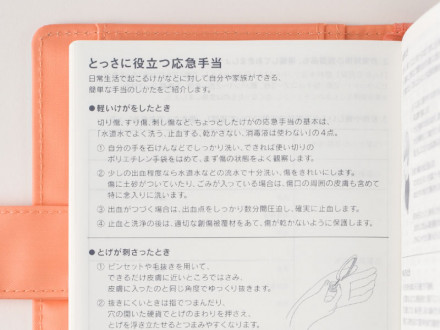 とっさに役立つ応急手当
日常生活で起こるけがなどに対して自分や家族ができる、
簡単な手当のしかたをご紹介します。
●軽いけがをしたとき
切り傷、すり傷、刺し傷など、ちょっとしたけがの応急手当の基本は、
「水道水でよく洗う、止血する、乾かさない、消毒液は使わない」の4点。
① 自分の手を石けんなどでしっかり洗い、できれば使い切りの
ポリエチレン手袋をはめて、まず傷の状態をよく観察します。
② 少しの出血程度なら水道水などの流水で十分洗い、傷をきれいにします。
傷に土砂がついていたり、ごみが入っている場合は、傷口の周囲の皮膚も含めて
特に念入りに洗います。
③ 出血がつづく場合は、出血点をしっかり数分間圧迫し、確実に止血します。
④ 止血と洗浄の後は、適切な創傷被覆材をあて、傷が乾かないように保護します。
●とげが刺さったとき
① ピンセットや毛抜きを用いて、
できるだけ皮膚に近いところではさみ、
皮膚に入ったのと同じ角度でゆっくり抜きます。
② 抜きにくいときは指でつまんだり、
穴の開いた硬貨でとげのまわりを押さえ、
とげを浮き立たせるとつまみやすくなります。